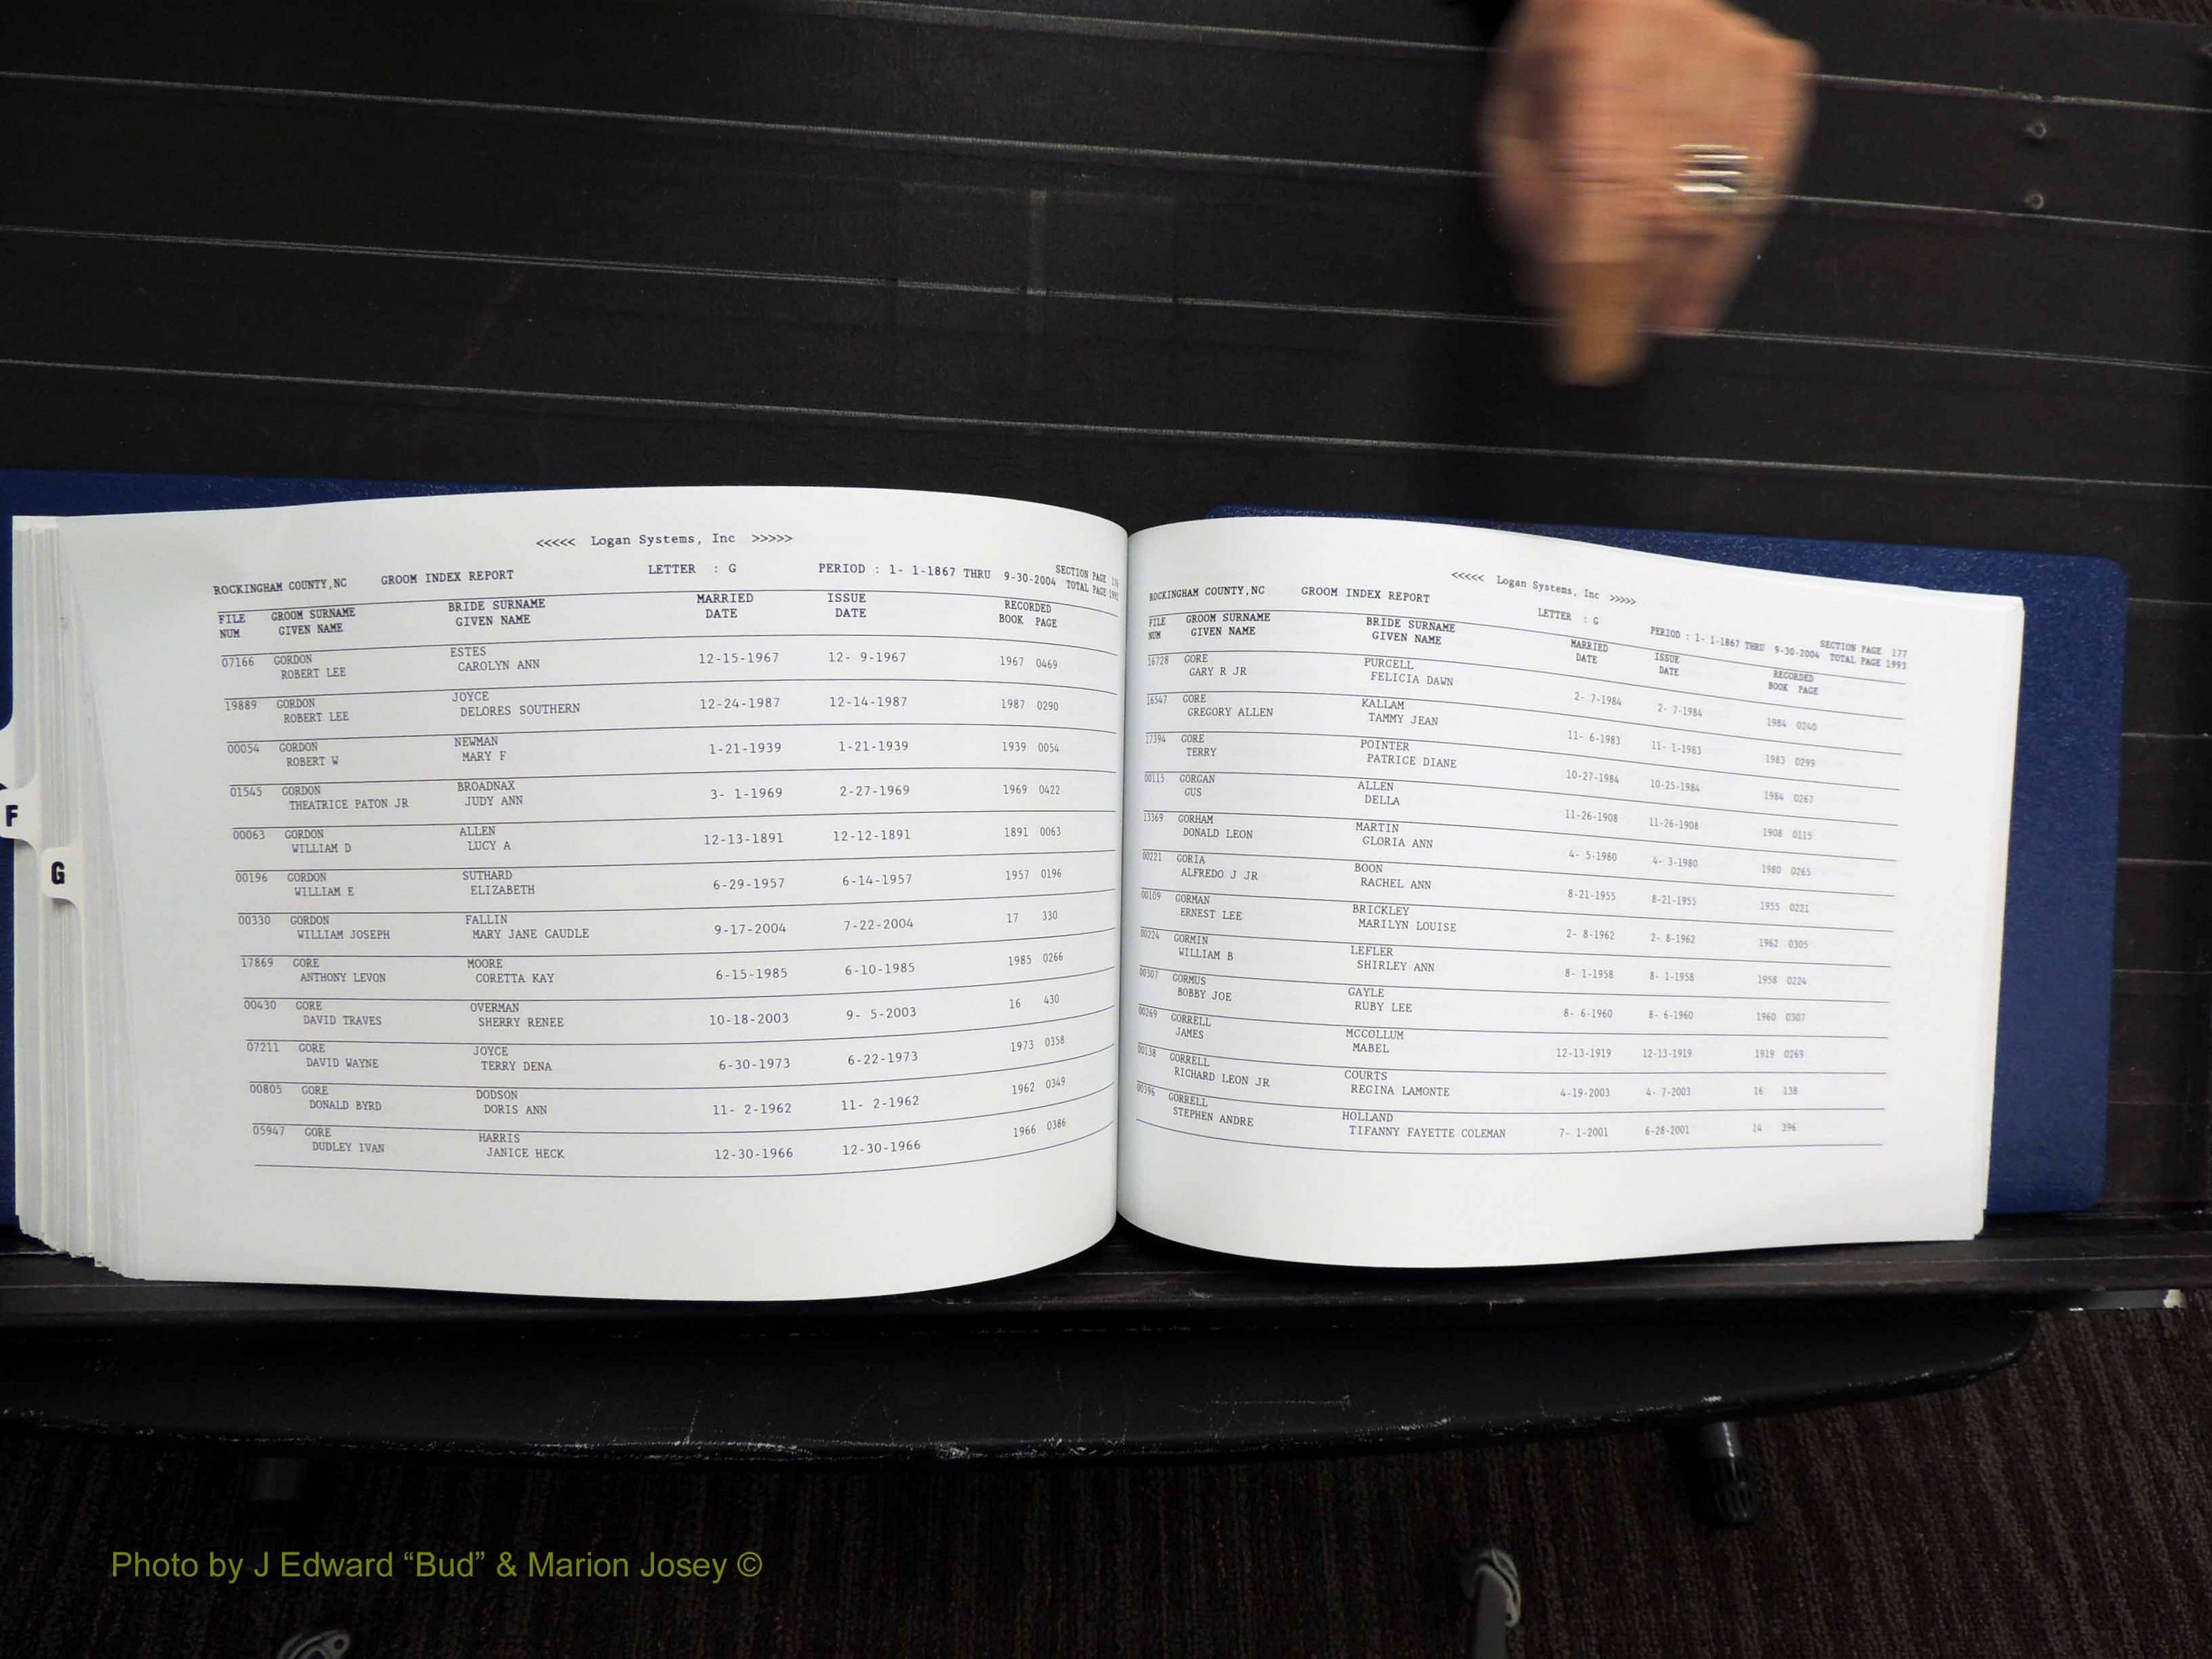 F
G
<<<<< Logan Systems, Inc >>>>>
ROCKINGHAM COUNTY,NC GROOM INDEX REPORT LETTER : G PERIOD : 1- 1-1867 THRU 9-30-2004 SECTION PAGE
TOTAL PAGE
FILE GROOM SURNAME BRIDE SURNAME MARRIED ISSUE RECORDED
NUM GIVEN NAME GIVEN NAME DATE DATE BOOK PAGE
07166 GORDON ESTES 12-15-1967 12- 9-1967 1967 0469
ROBERT LEE CAROLYN ANN
19889 GORDON JOYCE 12-24-1987 12-14-1987 1987 0290
ROBERT LEE DELORES SOUTHERN
00054 GORDON NEWMAN 1-21-1939 1-21-1939 1939 0054
ROBERT W MARY F
01545 GORDON BROADNAX 3- 1-1969 2-27-1969 1969 0422
THEATRICE PATON JR JUDY ANN
00063 GORDON ALLEN 12-13-1891 12-12-1891 1891 0063
WILLIAM D LUCY A
00196 GORDON SUTHARD 6-29-1957 6-14-1957 1957 0196
WILLIAM E ELIZABETH
00330 GORDON FALLIN 9-17-2004 7-22-2004 17 330
WILLIAM JOSEPH MARY JANE CAUDLE
17869 GORE MOORE 6-15-1985 6-10-1985 1985 0266
ANTHONY LEVON CORETTA KAY
00430 GORE OVERMAN 10-18-2003 9- 5-2003 16 430
DAVID TRAVES SHERRY RENEE
07211 GORE JOYCE 6-30-1973 6-22-1973 1973 0358
DAVID WAYNE TERRY DENA
00805 GORE DODSON 11- 2-1962 11- 2-1962 1962 0349
DONALD BYRD DORIS ANN
05947 GORE HARRIS 12-30-1966 12-30-1966 1966 0386
DUDLEY IVAN JANICE HECK
<<<<< Logan Systems, Inc >>>>>
ROCKINGHAM COUNTY,NC GROOM INDEX REPORT LETTER : G PERIOD : 1- 1-1867 THRU 9-30-2004 SECTION PAGE 177
TOTAL PAGE 1993
FILE GROOM SURNAME BRIDE SURNAME MARRIED ISSUE RECORDED
NUM GIVEN NAME GIVEN NAME DATE DATE BOOK PAGE
16728 GORE PURCELL 2- 7-1984 2- 7-1984 1984 0240
GARY R JR FELICIA DAWN
16547 GORE KALLAM 11- 6-1983 11- 1-1983 1983 0299
GREGORY ALLEN TAMMY JEAN
17394 GORE POINTER 10-27-1984 10-25-1984 1984 0267
TERRY PATRICE DIANE
00115 GORGAN ALLEN 11-26-1908 11-26-1908 1908 0115
GUS DELLA
13369 GORHAM MARTIN 4- 5-1980 4- 3-1980 1980 0265
DONALD LEON GLORIA ANN
00221 GORIA BOON 8-21-1955 8-21-1955 1955 0221
ALFREDO J JR RACHEL ANN
00109 GORMAN BRICKLEY 2- 8-1962 2- 8-1962 1962 0305
ERNEST LEE MARILYN LOUISE
00224 GORMIN LEFLER 8- 1-1958 8- 1-1958 1958 0224
WILLIAM B SHIRLEY ANN
00307 GORMUS GAYLE 8- 6-1960 8- 6-1960 1960 0307
BOBBY JOE RUBY LEE
00269 GORRELL MCCOLLUM 12-13-1919 12-13-1919 1919 0269
JAMES MABEL
00138 GORRELL COURTS 4-19-2003 4- 7-2003 16 138
RICHARD LEON JR REGINA LAMONTE
00396 GORRELL HOLLAND 7- 1-2001 6-28-2001 14 396
STEPHEN ANDRE TIFANNY FAYETTE COLEMAN
Photo by J Edward “Bud” & Marion Josey ©